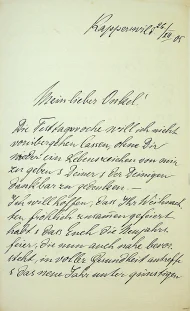 Rapperswil 26/XII 05
Mein lieber Onkel!
Die Festtagwoche will ich nicht
vorübergehen lassen, ohne Dir
wieder ein Lebenszeichen von mir
zu geben & Deiner & der Deinigen
dankbar zu gedenken. —
Ich will hoffen, dass Ihr Weihnach-
ten fröhlich zusammen gefeiert
habt & dass Euch die Neujahrs-
feier, die nun auch nahe bevor-
steht, in voller Gesundheit antrifft
& das neue Jahr unter günstigen